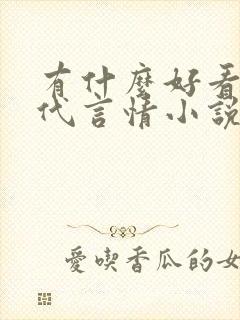 有什麼好看
代言情小說
愛喫香瓜的女